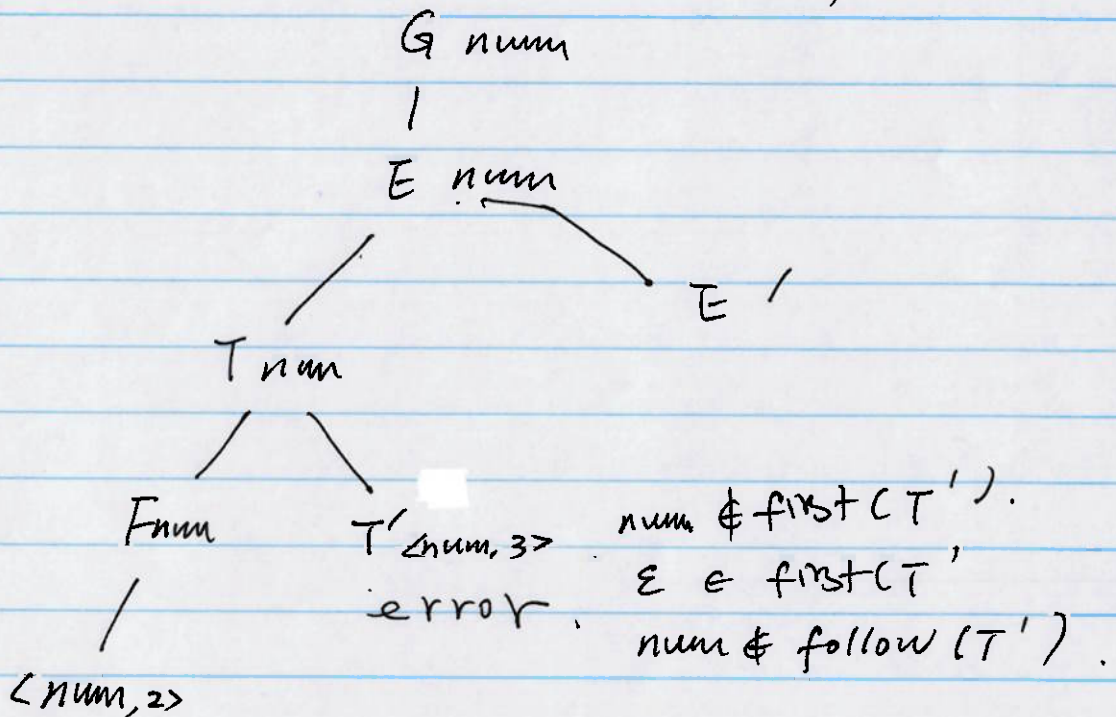 G num
E num
E '
T num
Fnum T' <num, 3> . num ∉ first (T').
error. ε ∈ first (T'
num ∉ follow (T').
<num, 2>